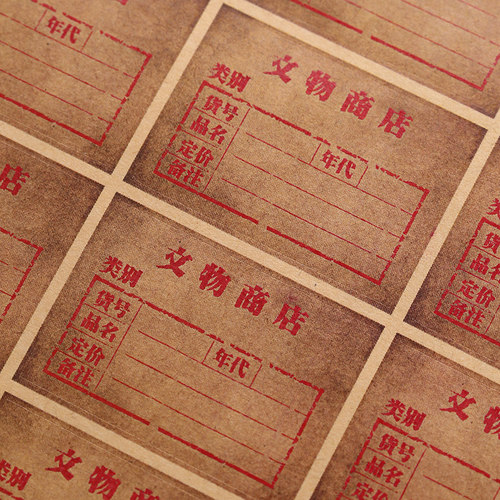 年代
文物商店
类别
货号 年代
品名
定价
备注
店
文物商店
类别
货号
品名 年代
定价
备注
类
货号
品名
定价
备注
类别
文物商
类别
文物
货号
品名
定价